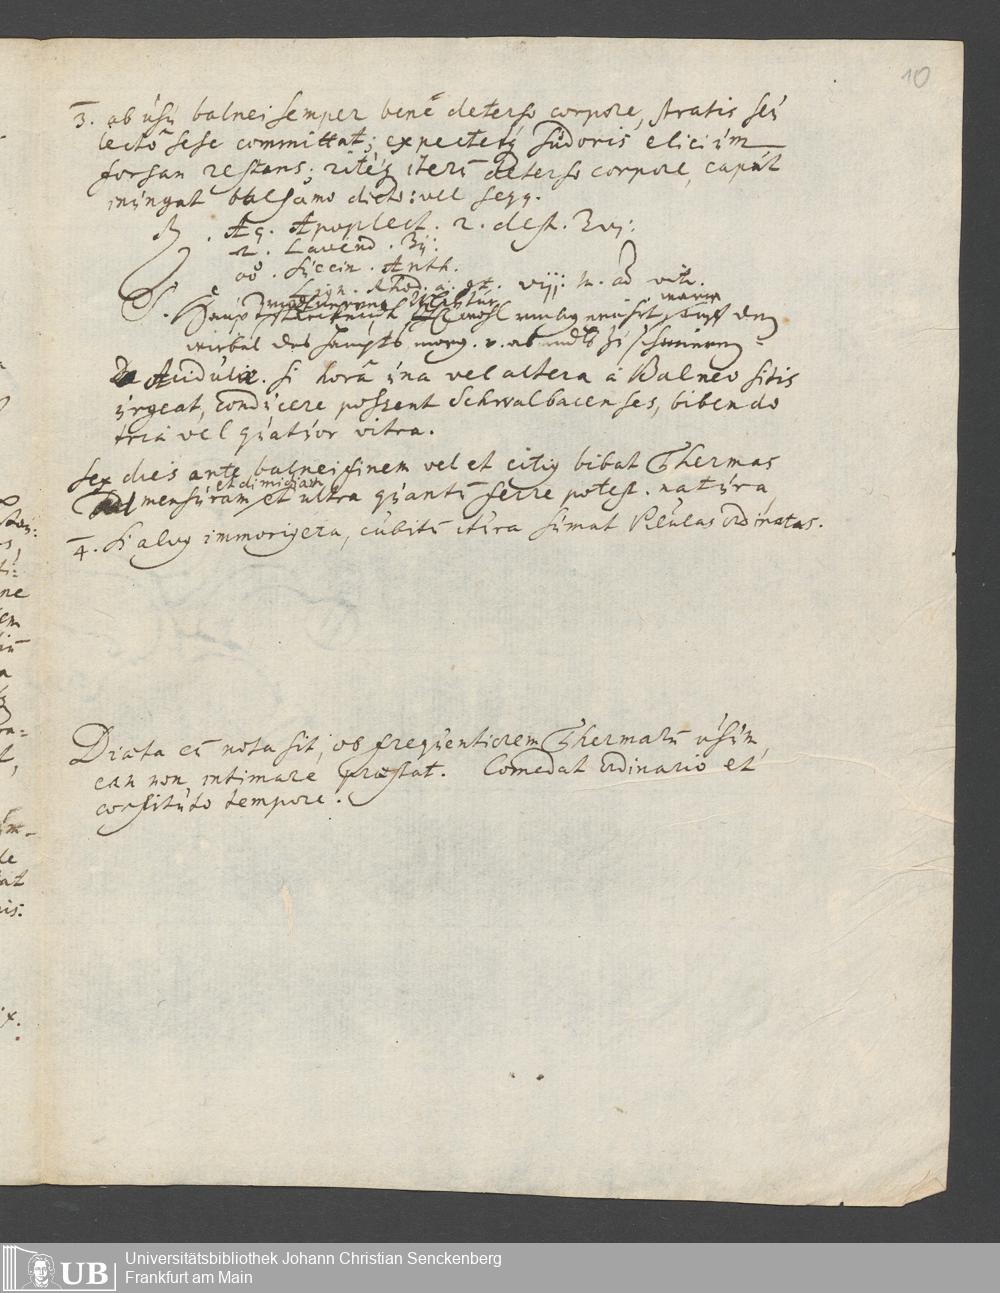 10
3. ab usu balnei semper benè deterso corpore, stratis seu
lecto sese committat; expectetq sudoris elicium
forsan restans; ritéq iterū deterso corpore, caput
inungat balsamo dicto: vel seqq.
Aq. Apoplect. r. dest.
Lavend.
Succin. Anth.
Lign. Rhod. a. gt. viij. m. ad vitr.
S.
wirbel des haupts, morg. v. abendts zu schmieren
Acidulæ. si horâ una vel altera à Balneo sitis
urgeat, conducere possent Schwalbacenses, bibendo
tria vel quatuor vitra.
Sex dies ante balnei finem vel et citiq bibat Thermas
et dimidiam
mensuram et ultra quantū ferre potest. natura
4. Si alvq immorigera, cubitū itura sumat Pilulas ordinatas.
Diæta cū nota sit, ob frequentiorem Thermarū usum,
eam non intimare præstat. Comedat ordinario et
consituto tempore.
Universitätsbibliothek Johann Christian Senckenberg
Frankfurt am Main
UB